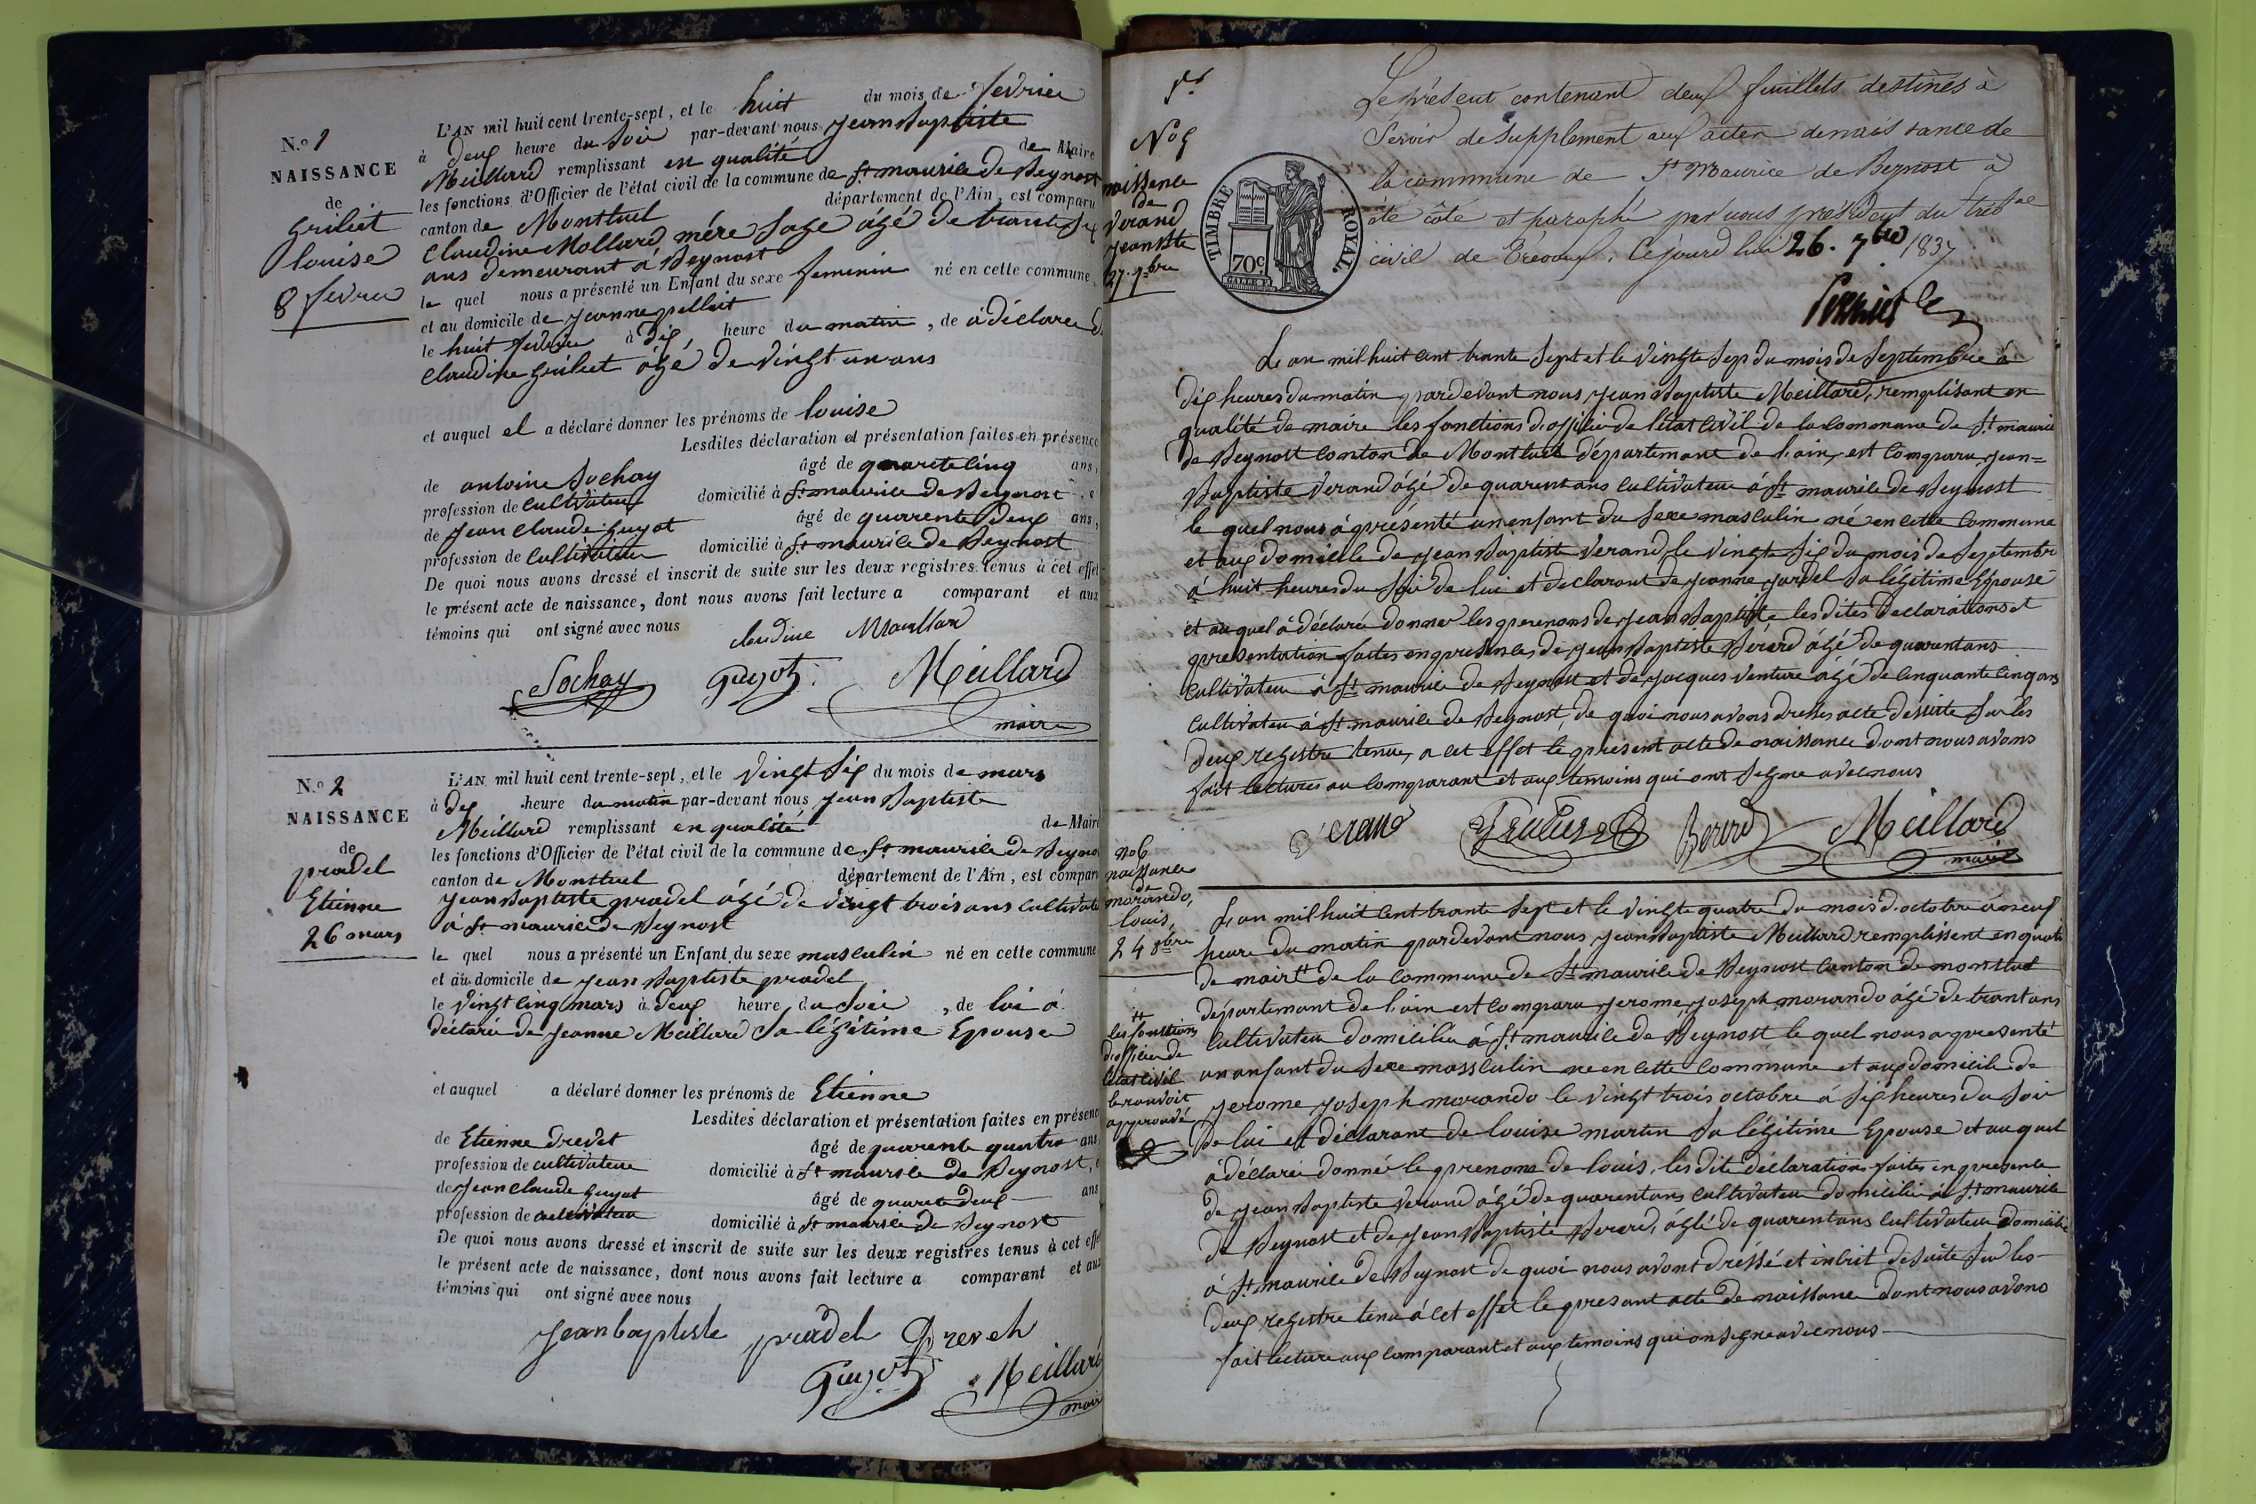 N.o 1
NAISSANCE
de
Griliet
louise
8 fevrier
L'AN mil huit cent trente-sept, et le huit du mois de fevrier
à deux heure du soir par-devant nous Jean Baptiste
Meillard remplissant en qualité de Maire
les fonctions d'Officier de l'état civil de la commune de St maurice de Beynost
canton de Montluel département de l'Ain, est comparu
Claudine Mollard, mére sage âgé de trante six
ans demeurant à Beynost
le quel nous a présenté un Enfant du sexe feminin né en cette commune,
et au domicile de Jeanne pelloit
le huit fevrier à dix heure du matin, de à déclaré de
Claudine Griliet âgé de vingt un ans
et auquel el a déclaré donner les prénoms de louise
Lesdites déclaration et présentation faites en présence
de antoine Sochay âgé de quarcte cinq ans,
profession de cultivateur domicilié à St maurice de Beynost, e
de Jean Claude Guyot âgé de quarente deux ans,
profession de cultivateur domicilié à St maurice de Beynost
De quoi nous avons dressé et inscrit de suite sur les deux registres tenus à cet effet
le présent acte de naissance, dont nous avons fait lecture a comparant et aux
témoins qui ont signé avec nous
claudine Moullard
Sochay Guyot Meillard
maire
N.o 2
NAISSANCE
de
pradel
Etienne
26 mars
L'AN mil huit cent trente-sept, et le vingt six du mois de mars
à dix heure du matin par-devant nous Jean Baptiste
Meillard remplissant en qualité de Maire
les fonctions d'Officier de l'état civil de la commune de St maurice de Beyno
canton de Montluel département de l'Ain, est compar
Jean Baptiste pradel âgé de vingt trois ans cultivate
à St maurice de Beynost
le quel nous a présenté un Enfant du sexe masculin né en cette commune
et au domicile de Jean Baptiste pradel
le vingt cinq mars à deux heure du soir, de lui à
déclaré de Jeanne Meillard sa légitime Epouse
et auquel a déclaré donner les prénoms de Etienne
Lesdites déclaration et présentation faites en présenc
de Etienne Drevet âgé de quarente quatre ans
profession de cultivateur domicilié à St maurice de Beynost,
de Jean Claude Guyot âgé de quarcte deux ans
profession de cultivateur domicilié à St maurice de Beynost
De quoi nous avons dressé et inscrit de suite sur les deux registres tenus à cet effe
le présent acte de naissance, dont nous avons fait lecture a comparant et aux
témoins qui ont signé avec nous
jean baptiste pradel Dreveh
Guyot Meillard
mair
No 5
naissence
de
Verand
Jean Btte
27. 7bre
TIMBRE ROYAL.
70c
Le présent contenant deux feuillets destinés à
servir de supplement aux actes de naissance de
la commune de St Maurice de Beynost à
été côté et paraphé par nous président du trib al
civil de Trévoux, Cejourd'hui 26. 7bre 1837
L'an mil huit cent trante sept et le vingte sep du mois de Septembre à
dix heures du matin pardevant nous Jean Baptiste Meillard, remplisant en
qualité de maire les fonctions d'officie de l'état civil de la commune de St maurice
de Beynost canton de Montluel départemant de l'ain, est comparu, Jean=
Baptiste Verand âgé de quarent ans cultivateur à St maurice de Beynost
le quel nous à présenté un enfant du sexe masculin né en cette commune
et aux domicile de Jean Baptiste Verand, le vingte six du mois de Septembre
à huit heures du soir de lui et declarant de Jeanne Jardel sa légitime épouse
et auquel à déclaré donner les prenons de Jean Baptiste les dites declarations et
presentation faites en présences de Jean Baptiste Bérard âgé de quarent ans
cultivateur à St maurice de Beynost et de Jacques Venture âgé de cinquante cinq ans
cultivateur à St maurice de Beynost, de quoi nous avons dresses acte de suite sur les
deux registre tenue, a cet effet le présent acte de naissance dont nous avons
fait lectures au comparant et aux temoins qui ont signe avec nous
Verand Berard Meillard
maire
No 6
naissance
de
morando,
louis,
24 8bre
L'an mil huit cent trante sept et le vingte quatre du mois d'octobre à neuf
heure du matin pardevant nous Jean Baptiste Meillard remplissent en qualité
de mair tt de la commune de St maurice de Beynost canton de montluel
départemant de l'ain est comparu Jerome Joseph morando âgé de trant ans
tt
les fonctions
d'officier de
l'état civil
le ranvoit
approuvé
cultivateur domicilié à St maurice de Beynost le quel nous a presenté
un anfant du sexe masculin né en cette commune et aux domicile de
Jerome Joseph morando le vingt trois octobre à six heures du soir
de lui et déclarant de louise martin sa légitime Epouse et auquel
à déclaré donné le prenoms de louis, les dit déclarations faites en presente
de Jean Baptiste Verand âgé de quarent ans cultivateur domicilié à St maurice
de Beynost et de Jean Baptiste Berard, âgé de quarent ans cultivateur domicilié
à St maurice de Beynost de quoi nous avont dréssé et inscrit de suite sur les
deux registre tenu à cet effet le presant acte de naissance dont nous avons
fait lecture aux comparant et aux temoins qui on signe avec nous